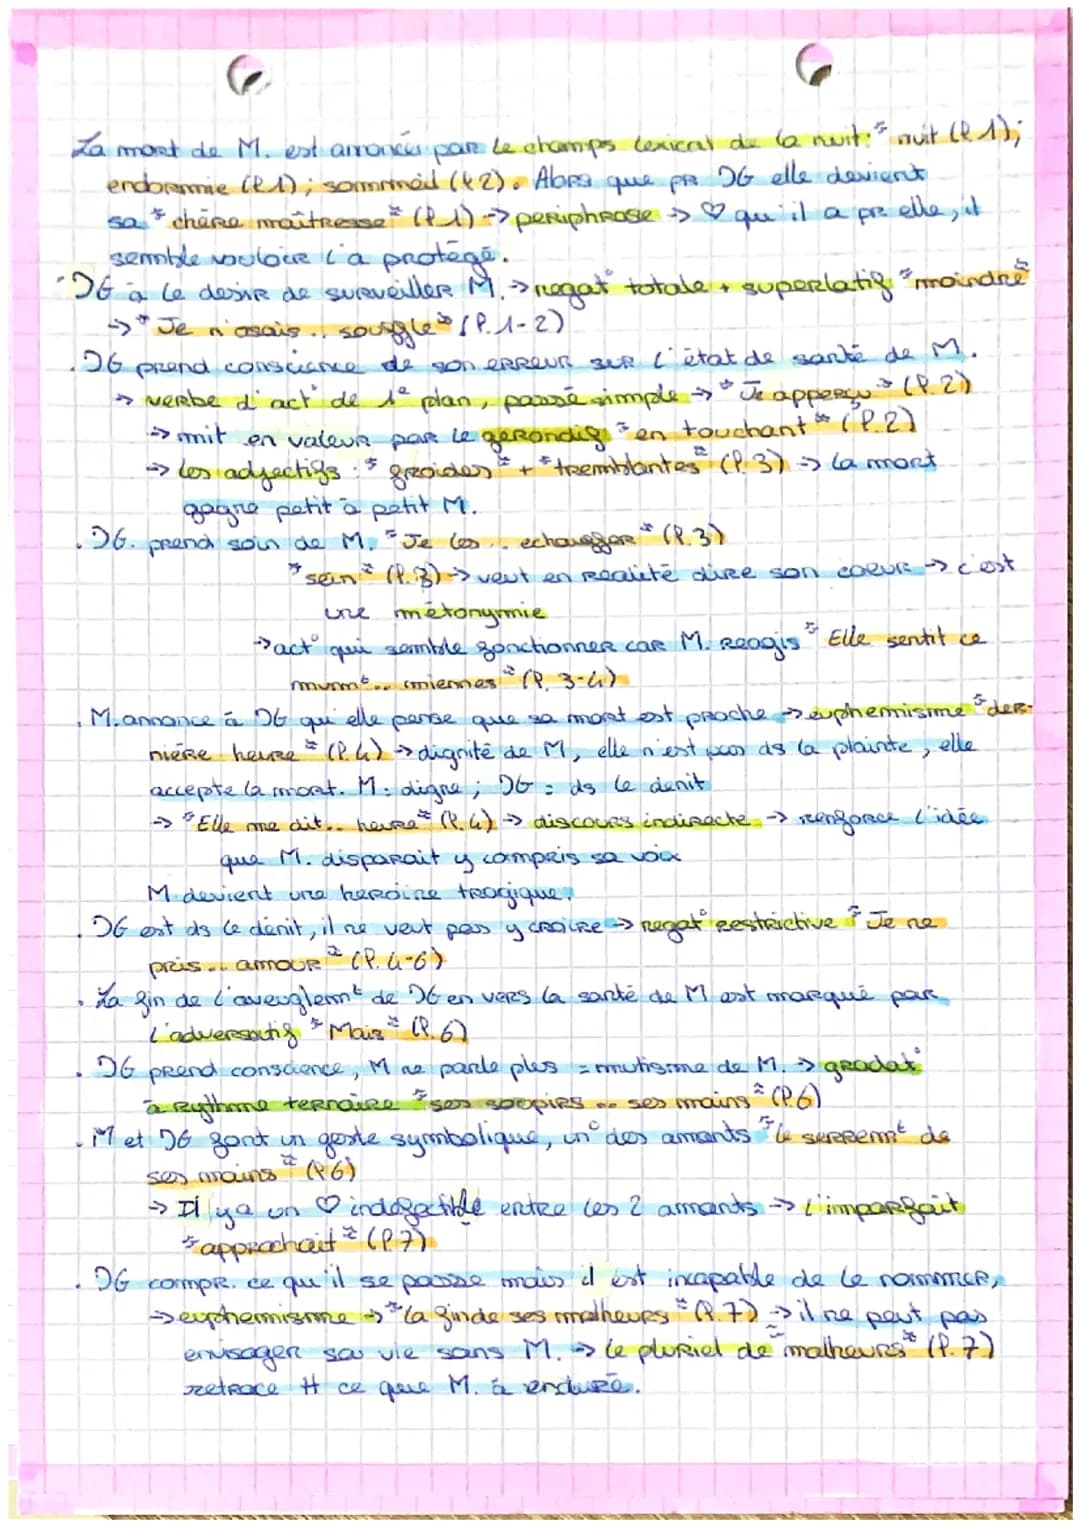 La mort de M. est annoncée par le champs lexical de la nuit : "nuit (l.1);
endormie (l.1); sommeil (l.2). Alors que pr DG elle devient
sa "chère maîtresse" (l.1) -> periphrase -> ♡ qu'il a pr elle, il
semble vouloir l'a protégé.
· DG à le desir de surveiller M. -> negat° totale + superlatif "moindre"
-> "Je n'osais .. souffle" (l.1-2)
. DG prend conscience de son erreur sur l'état de santé de M.
-> verbe d'act° de 1e plan, passé simple -> "Je apperçu" (l.2)
-> mit en valeur par le gerondif "en touchant" (l.2)
-> les adjectifs : "froides" + "tremblantes" (l.3) -> la mort
gagne petit à petit M.
. DG. prend soin de M. "Je les .. echauffer" (l.3)
"sein" (l.3) -> veut en réalité dire son coeur -> c'est
une métonymie
-> act° qui semble fonctionner car M. reagis "Elle sentit ce
mvmt .. miennes" (l.3-4)
. M. annonce à DG qu'elle pense que sa mort est proche -> euphemisme "der-
nière heure" (l.4) -> dignité de M, elle n'est pas ds la plainte, elle
accepte la mort. M : digne ; DG : ds le denit
-> "Elle me dit.. heure" (l.4) -> discours indirecte -> renforce l'idée
que M. disparait y compris sa voix
M devient une heroine tragique.
. DG est ds le dénit, il ne veut pas y croire -> negat° restrictive "Je ne
pris .. amour" (l.4-6)
. La fin de l'aveuglemt de DG en vers la santé de M est marqué par
l'adversatif "Mais" (l.6)
. DG prend conscience, M ne parle plus = mutisme de M. -> gradat°
à rythme ternaire "ses soupirs .. ses mains" (l.6)
. M et DG font un geste symbolique, un° des amants "le serremt de
ses mains" (l.6)
-> Il y a un ♡ indefectible entre les 2 amants -> l'imparfait
"approchait" (l.7)
. DG compr. ce qu'il se passe mais il est incapable de le nommer,
-> euphemisme -> "la fin de ses malheurs" (l.7) -> il ne peut pas
envisager sa vie sans M. -> le pluriel de "malheurs" (l.7)
retrace tt ce que M. à enduré.